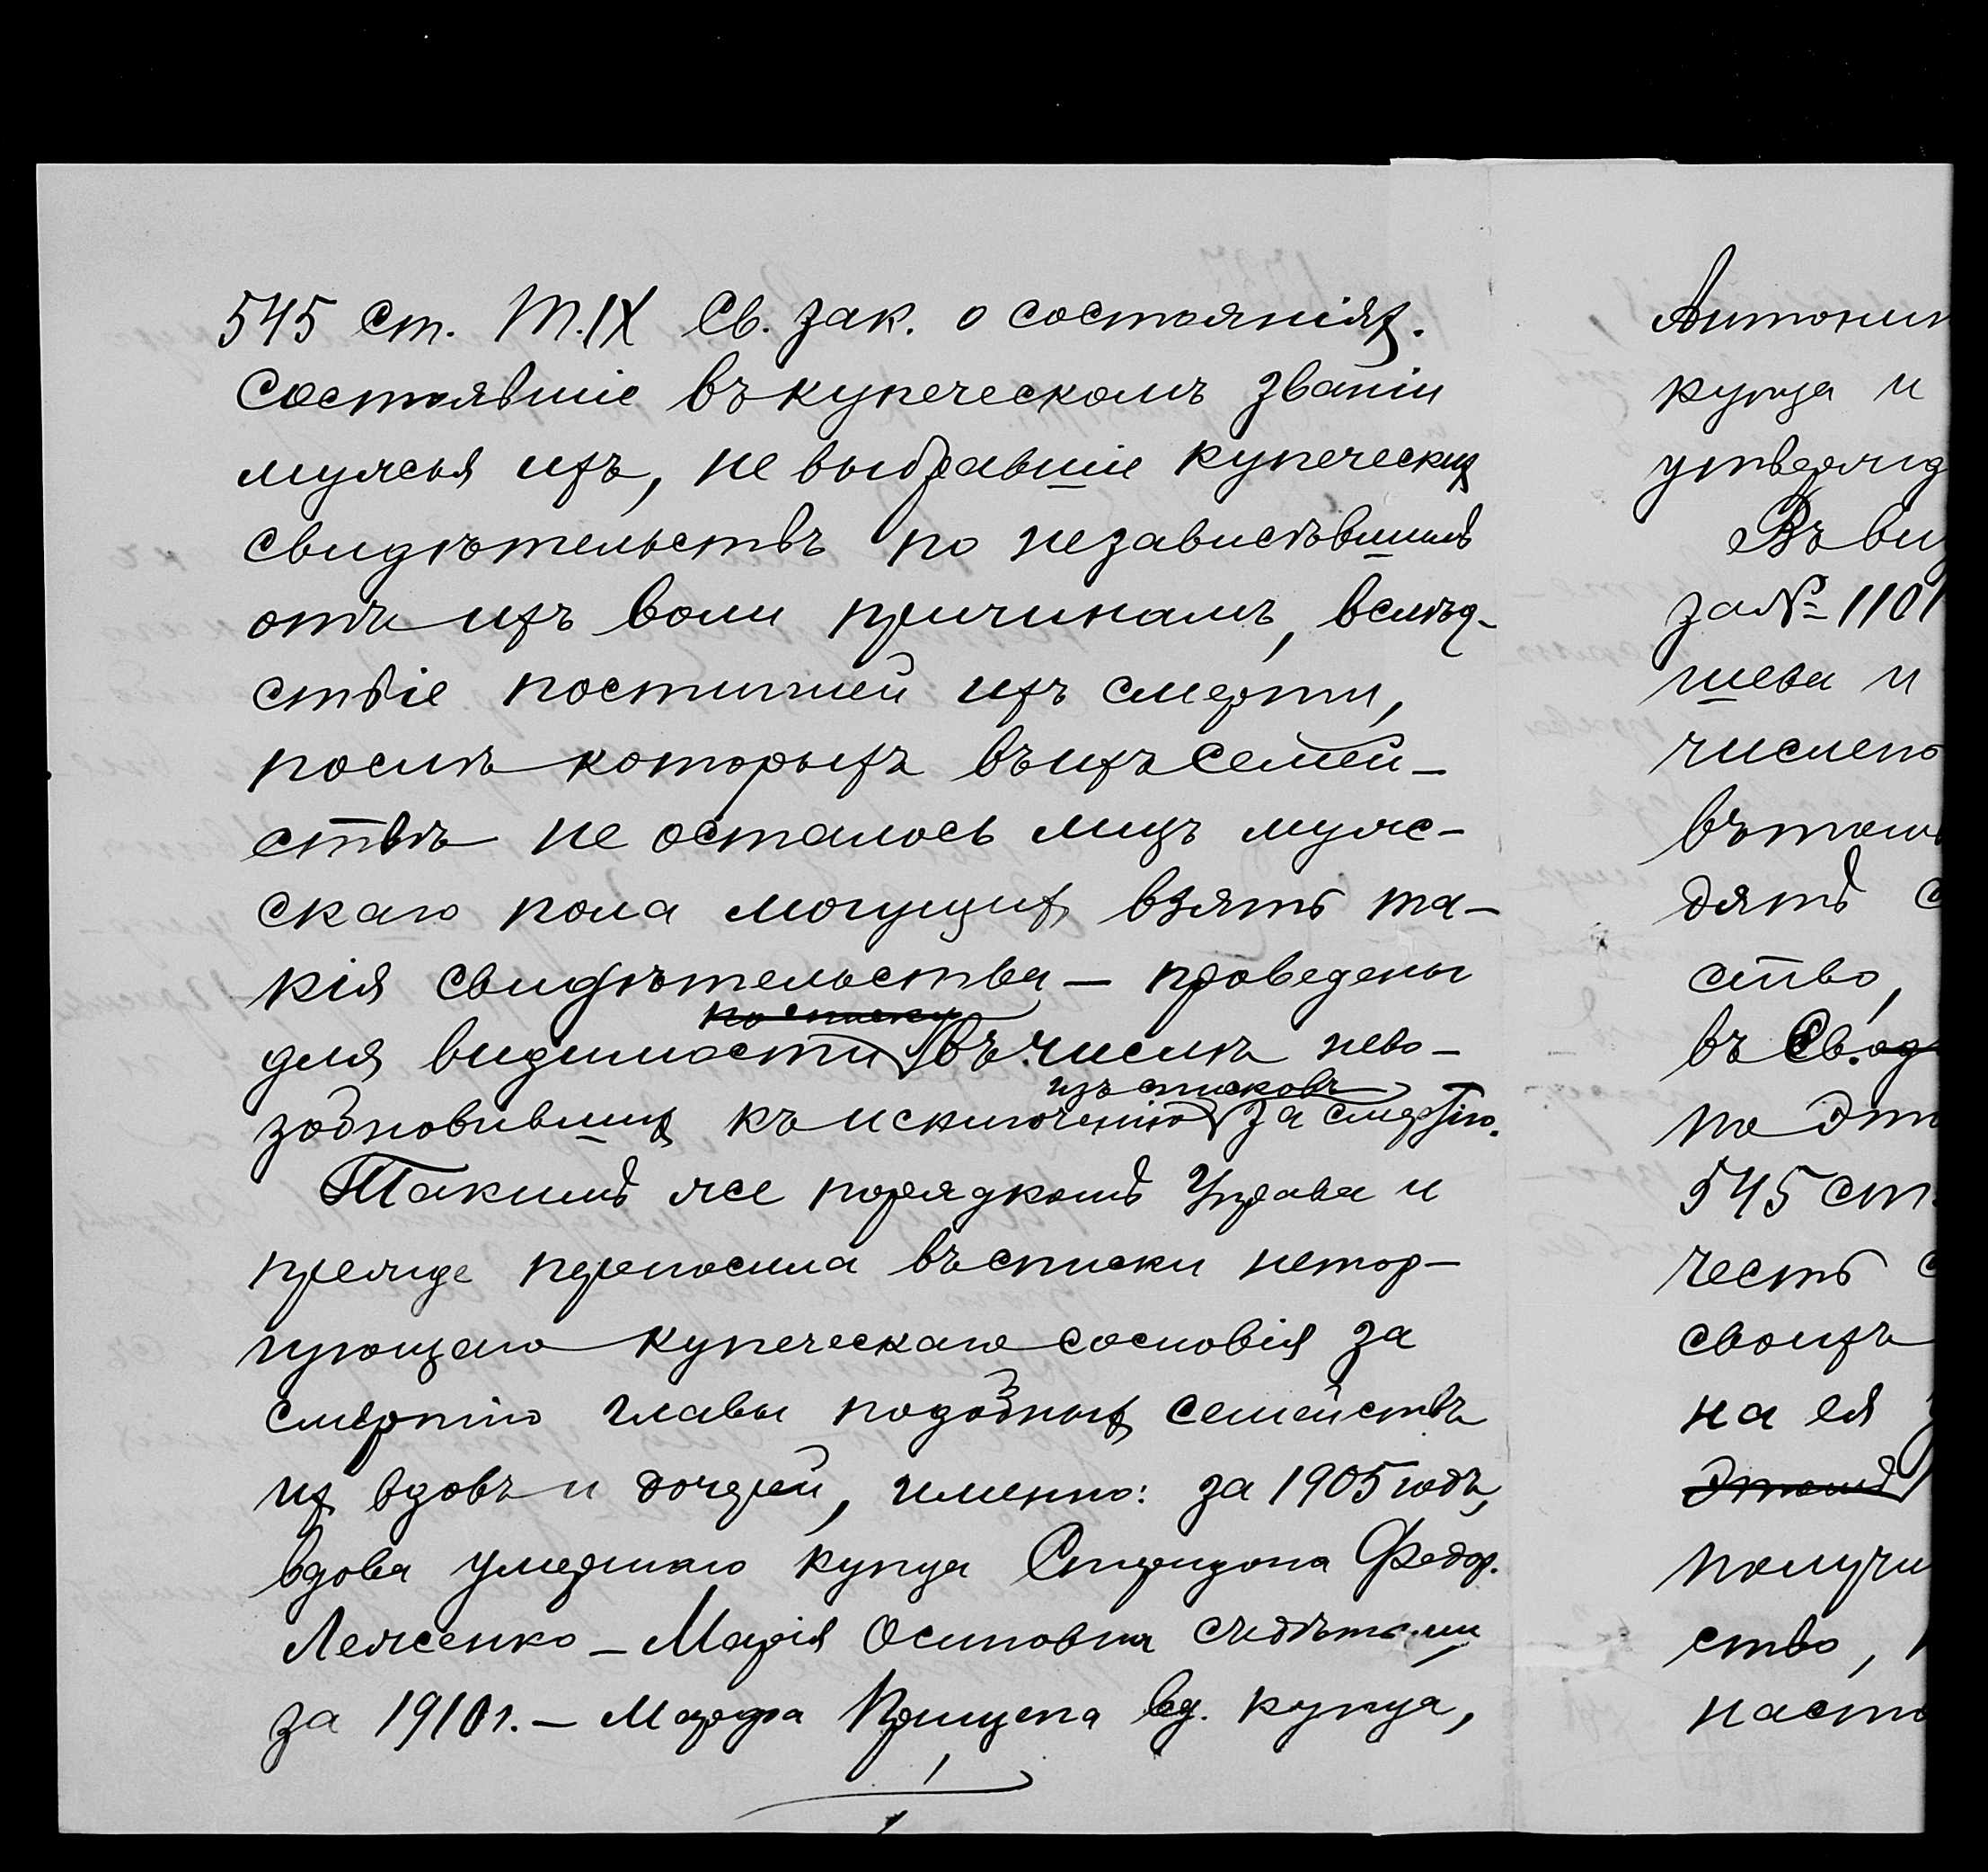 545 ст. Т. IX Св. зак. о состоянiях.
Состоявшiе въ купеческомъ званiи
мужья ихъ, не выбравшiе купеческих
свидѣтельствъ по независѣвшимъ
отъ ихъ воли причинамъ, вслѣд-
ствiе постигшей ихъ смерти,
послѣ которыхъ въ ихъ семей-
ствѣ не осталось лицъ муж-
скаго пола могущих взять та-
кiя свидѣтельства — проведены
по списку
для видимости въ числѣ нево-
изъ списковъ
зобновивших къ исключенiю за смертiю.
Такимъ же порядкомъ Управа и
прежде переносила въ списки нетор-
гующаго купеческаго сословiя за
смертiю главы подобных семействъ
их вдовъ и дочерей, именно: за 1905 годъ,
вдова умершаго купца Спиридона Федор.
Леженко — Марiя Осиповна съ дѣтьми,
за 1910 г. — Марфа Прищепа вд. купца,
Антонин
купца и
утвержд
Въ ви
за № 1101
шева и
числено
въ томъ
дятъ с
ство,
въ Св. од
по это
545 ст.
честь с
своихъ
на ея
Этомъ
получи
ство,
насто